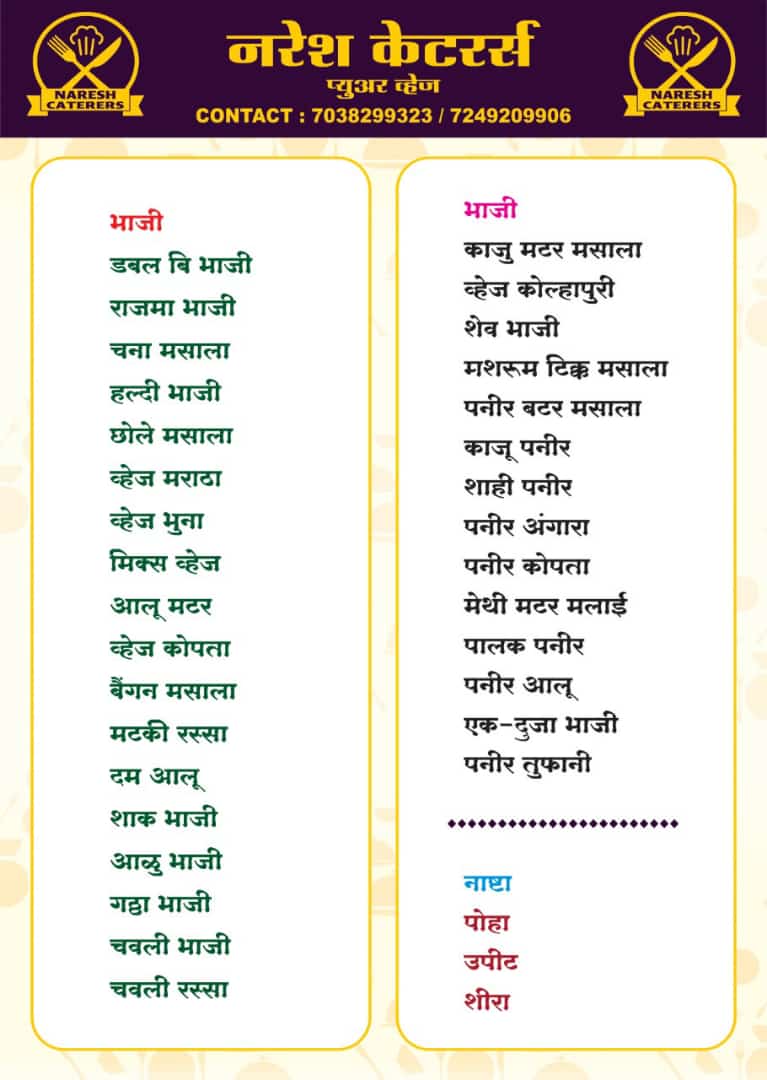 नरेश केटरर्स
प्युअर व्हेज
CONTACT : 7038299323 / 7249209906
NARESH
CATERERS
NARESH
CATERERS
भाजी
डबल बि भाजी
राजमा भाजी
चना मसाला
हल्दी भाजी
छोले मसाला
व्हेज मराठा
व्हेज भुना
मिक्स व्हेज
आलू मटर
व्हेज कोपता
बैंगन मसाला
मटकी रस्सा
दम आलू
शाक भाजी
आळु भाजी
गठ्ठा भाजी
चवली भाजी
चवली रस्सा
भाजी
काजु मटर मसाला
व्हेज कोल्हापुरी
शेव भाजी
मशरूम टिक्क मसाला
पनीर बटर मसाला
काजू पनीर
शाही पनीर
पनीर अंगारा
पनीर कोपता
मेथी मटर मलाई
पालक पनीर
पनीर आलू
एक-दुजा भाजी
पनीर तुफानी
नाष्टा
पोहा
उपीट
शीरा